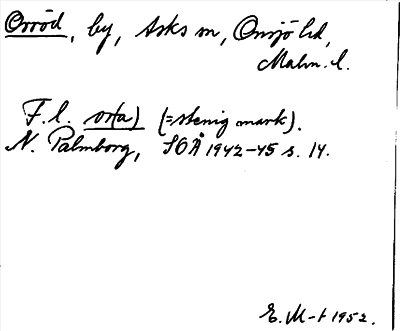 Orröd, by, Asks sn, Onsjö hd,
Malm. l.
F. l. orta) (= stenig mark).
N. Palmborg, SOÅ 1942-45 s. 14.
E. M-t 1952.